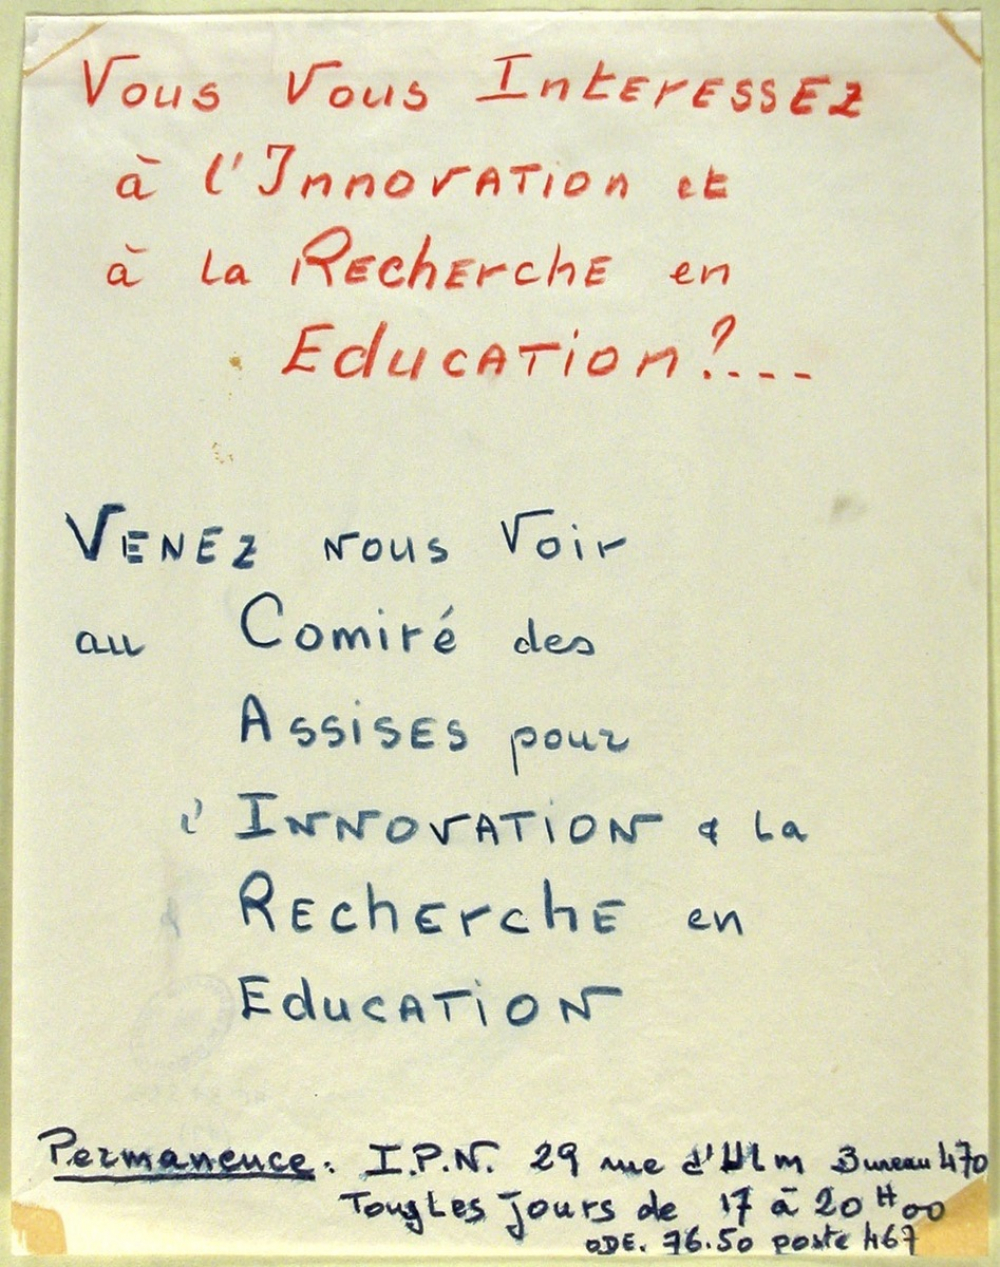 Vous Vous InterESSEZ
à l'InnovATion et
à la REchErchE en
EducATion?....
VENEZ nous Voir
au Comité des
ASSiSES pour
l'INNOVATiON & la
REchErchE en
EducATiON
Permanence: I.P.N. 29 rue d'Ulm Bureau 470
Tous Les jours de 17 à 20 H00
ODE. 76.50 poste 467